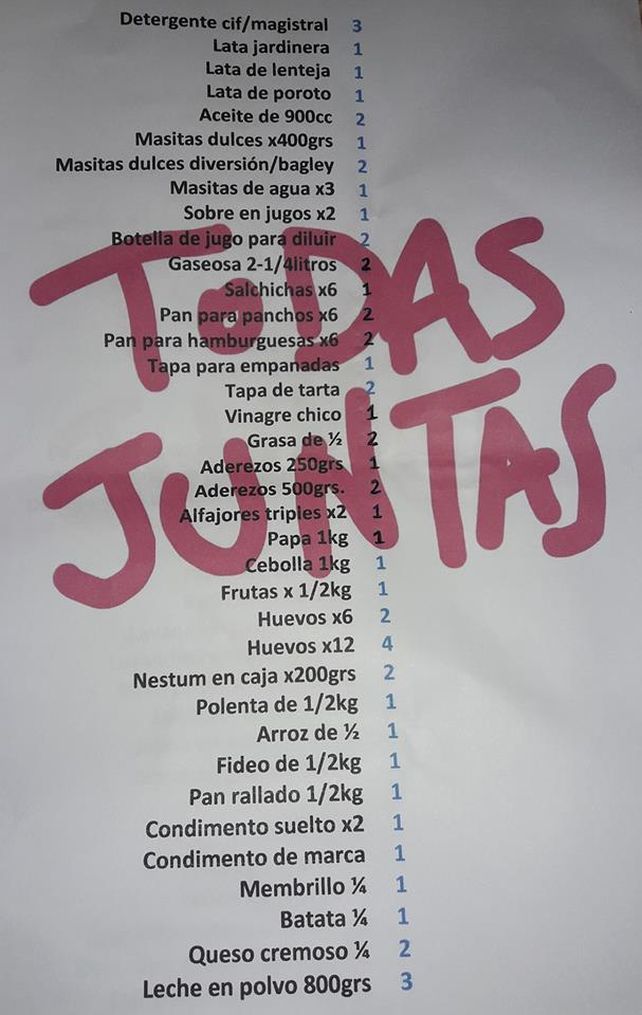 Detergente cif/magistral 3
Lata jardinera 1
Lata de lenteja 1
Lata de poroto 1
Aceite de 900cc 2
Masitas dulces x400grs 1
Masitas dulces diversión/bagley 2
Masitas de agua x3 1
Sobre en jugos x2 1
Botella de jugo para diluir 2
Gaseosa 2-1/4litros 2
Salchichas x6 1
Pan para panchos x6 2
Pan para hamburguesas x6 2
Tapa para empanadas 1
Tapa de tarta 2
Vinagre chico 1
Grasa de ½ 2
Aderezos 250grs 1
Aderezos 500grs. 2
Alfajores triples x2 1
Papa 1kg 1
Cebolla 1kg 1
Frutas x 1/2kg 1
Huevos x6 2
Huevos x12 4
Nestum en caja x200grs 2
Polenta de 1/2kg 1
Arroz de ½ 1
Fideo de 1/2kg 1
Pan rallado 1/2kg 1
Condimento suelto x2 1
Condimento de marca 1
Membrillo ¼ 1
Batata ¼ 1
Queso cremoso ¼ 2
Leche en polvo 800grs 3
ToDAS
JUNTAS